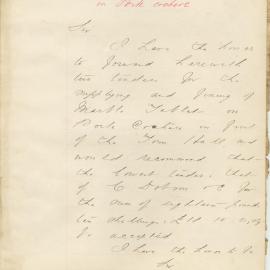 on Rock Crushers
Sir
I have the honor
to forward herewith
two tenders for the
supplying and fixing of
Marble Tablet on
Rock Crushers in front
of the Town Hall and
would recommend that
the lowest tender, that
of C Dobson & C for
the sum of eighteen pounds
ten shillings £18. 10
be accepted
I have the honor to be
Sir